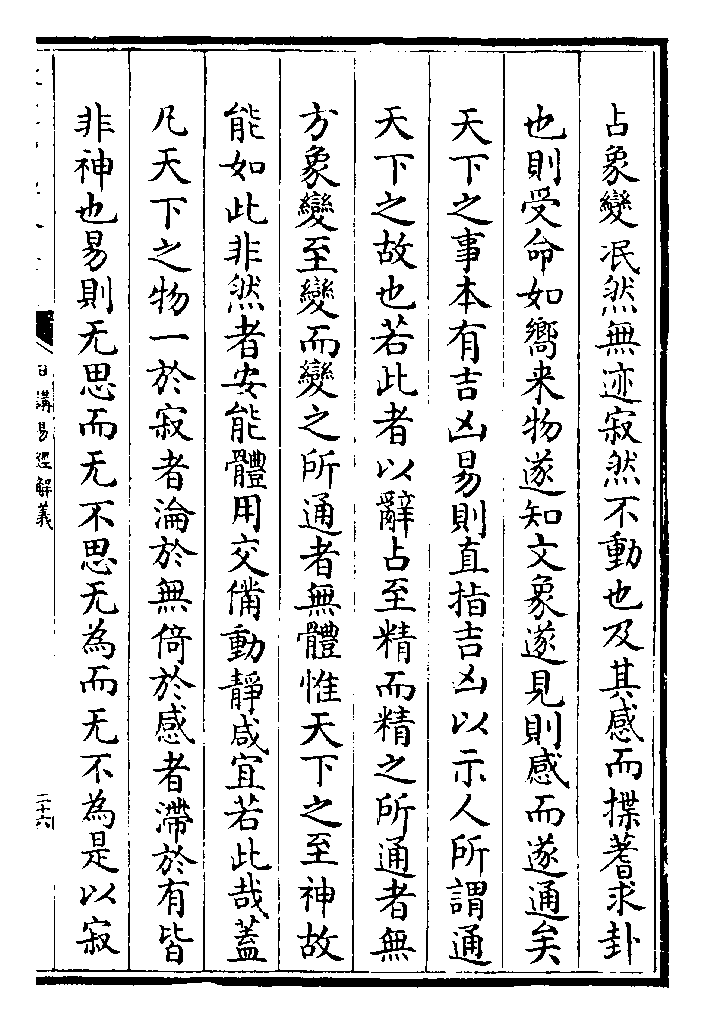 占象變泯然無迹寂然不動也及其感而揲蓍求卦
也則受命如嚮来物遂知文象遂見則感而遂通矣
天下之事本有吉凶易則直指吉凶以示人所謂通
天下之故也若此者以辭占至精而精之所通者無
方象變至變而變之所通者無體惟天下之至神故
能如此非然者安能體用交備動靜咸宜若此哉蓋
凡天下之物一於寂者淪於無倚於感者滯於有皆
非神也易則无思而无不思无為而无不為是以寂
日講易經解義
二十六